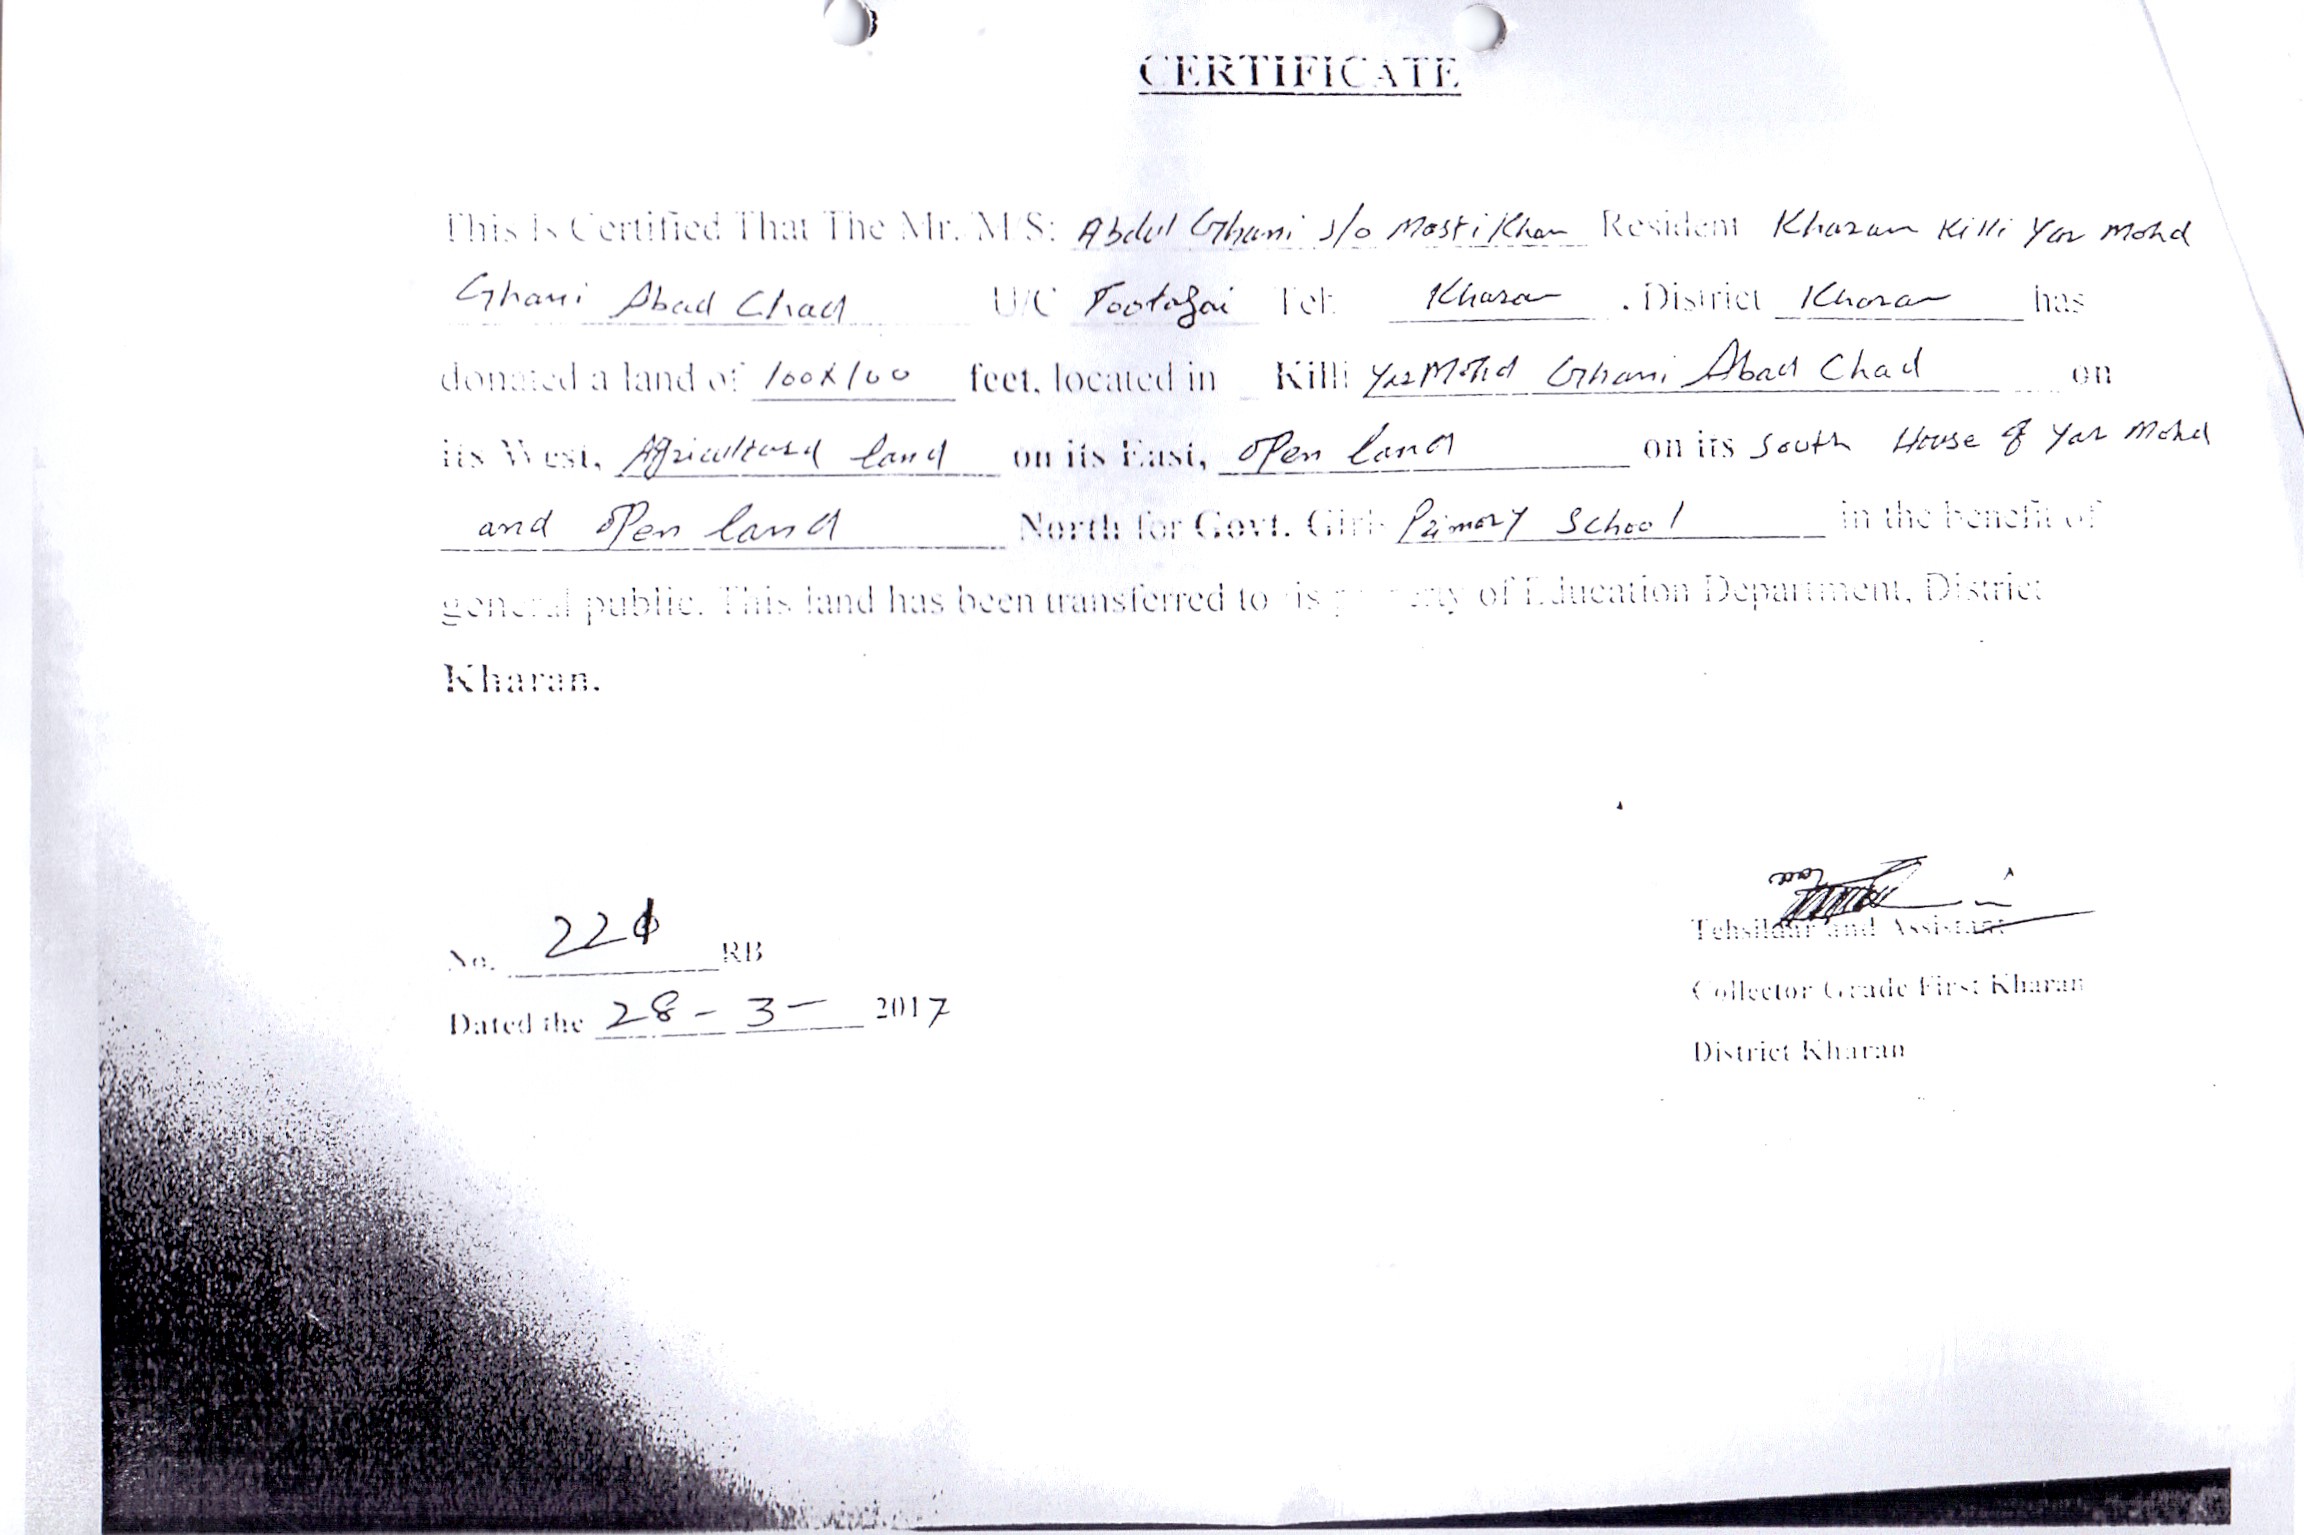 CERTIFICATE
This Is Certified That The Mr. M/S: Abdul Ghani s/o Masti Khan Resident Kharan Killi Yar Mohd
Ghani Abad Chad U/C Tootazai Teh: Kharan . District Kharan has
donated a land of 100x100 feet, located in Killi Yar Mohd Ghani Abad Chad on
its West, Agricultural land on its East, open land on its South House of Yar Mohd
and open land North for Govt. Girls Primary School in the benefit of
general public. This land has been transferred to of Education Department, District
Kharan.
No. RB
Dated the 28-3- 2017
Tehsildar and Assistant
Collector Grade First Kharan
District Kharan